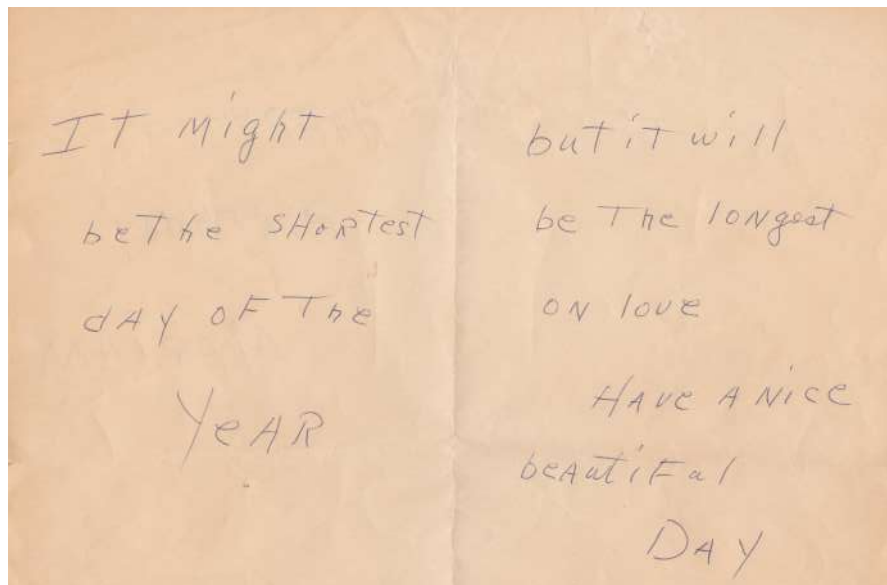 It might
be the SHoRTest
dAY OF The
YeAR
but it will
be The loNgest
oN love
HAve A Nice
beAutiFul
DAY